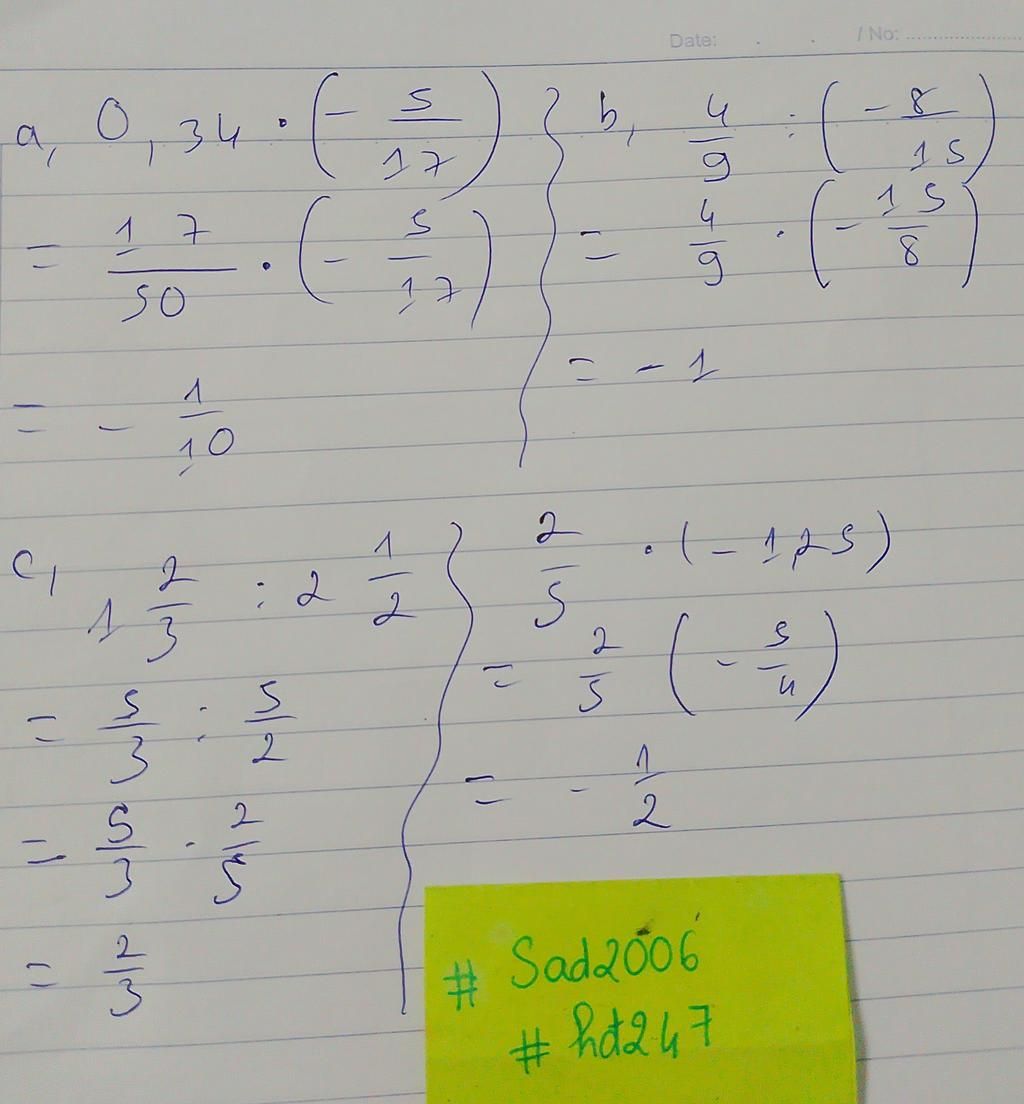 Date: . . / No: ...........................
a, 0,34 · (- 5/17)
= 17/50 · (- 5/17)
= - 1/10
b, 4/9 : (-8/15)
= 4/9 · (- 15/8)
= - 1
c, 1 2/3 : 2 1/2
= 5/3 : 5/2
= 5/3 · 2/5
= 2/3
2/5 · (- 1,25)
= 2/5 (- 5/4)
= - 1/2
# Sad2006
# hd247